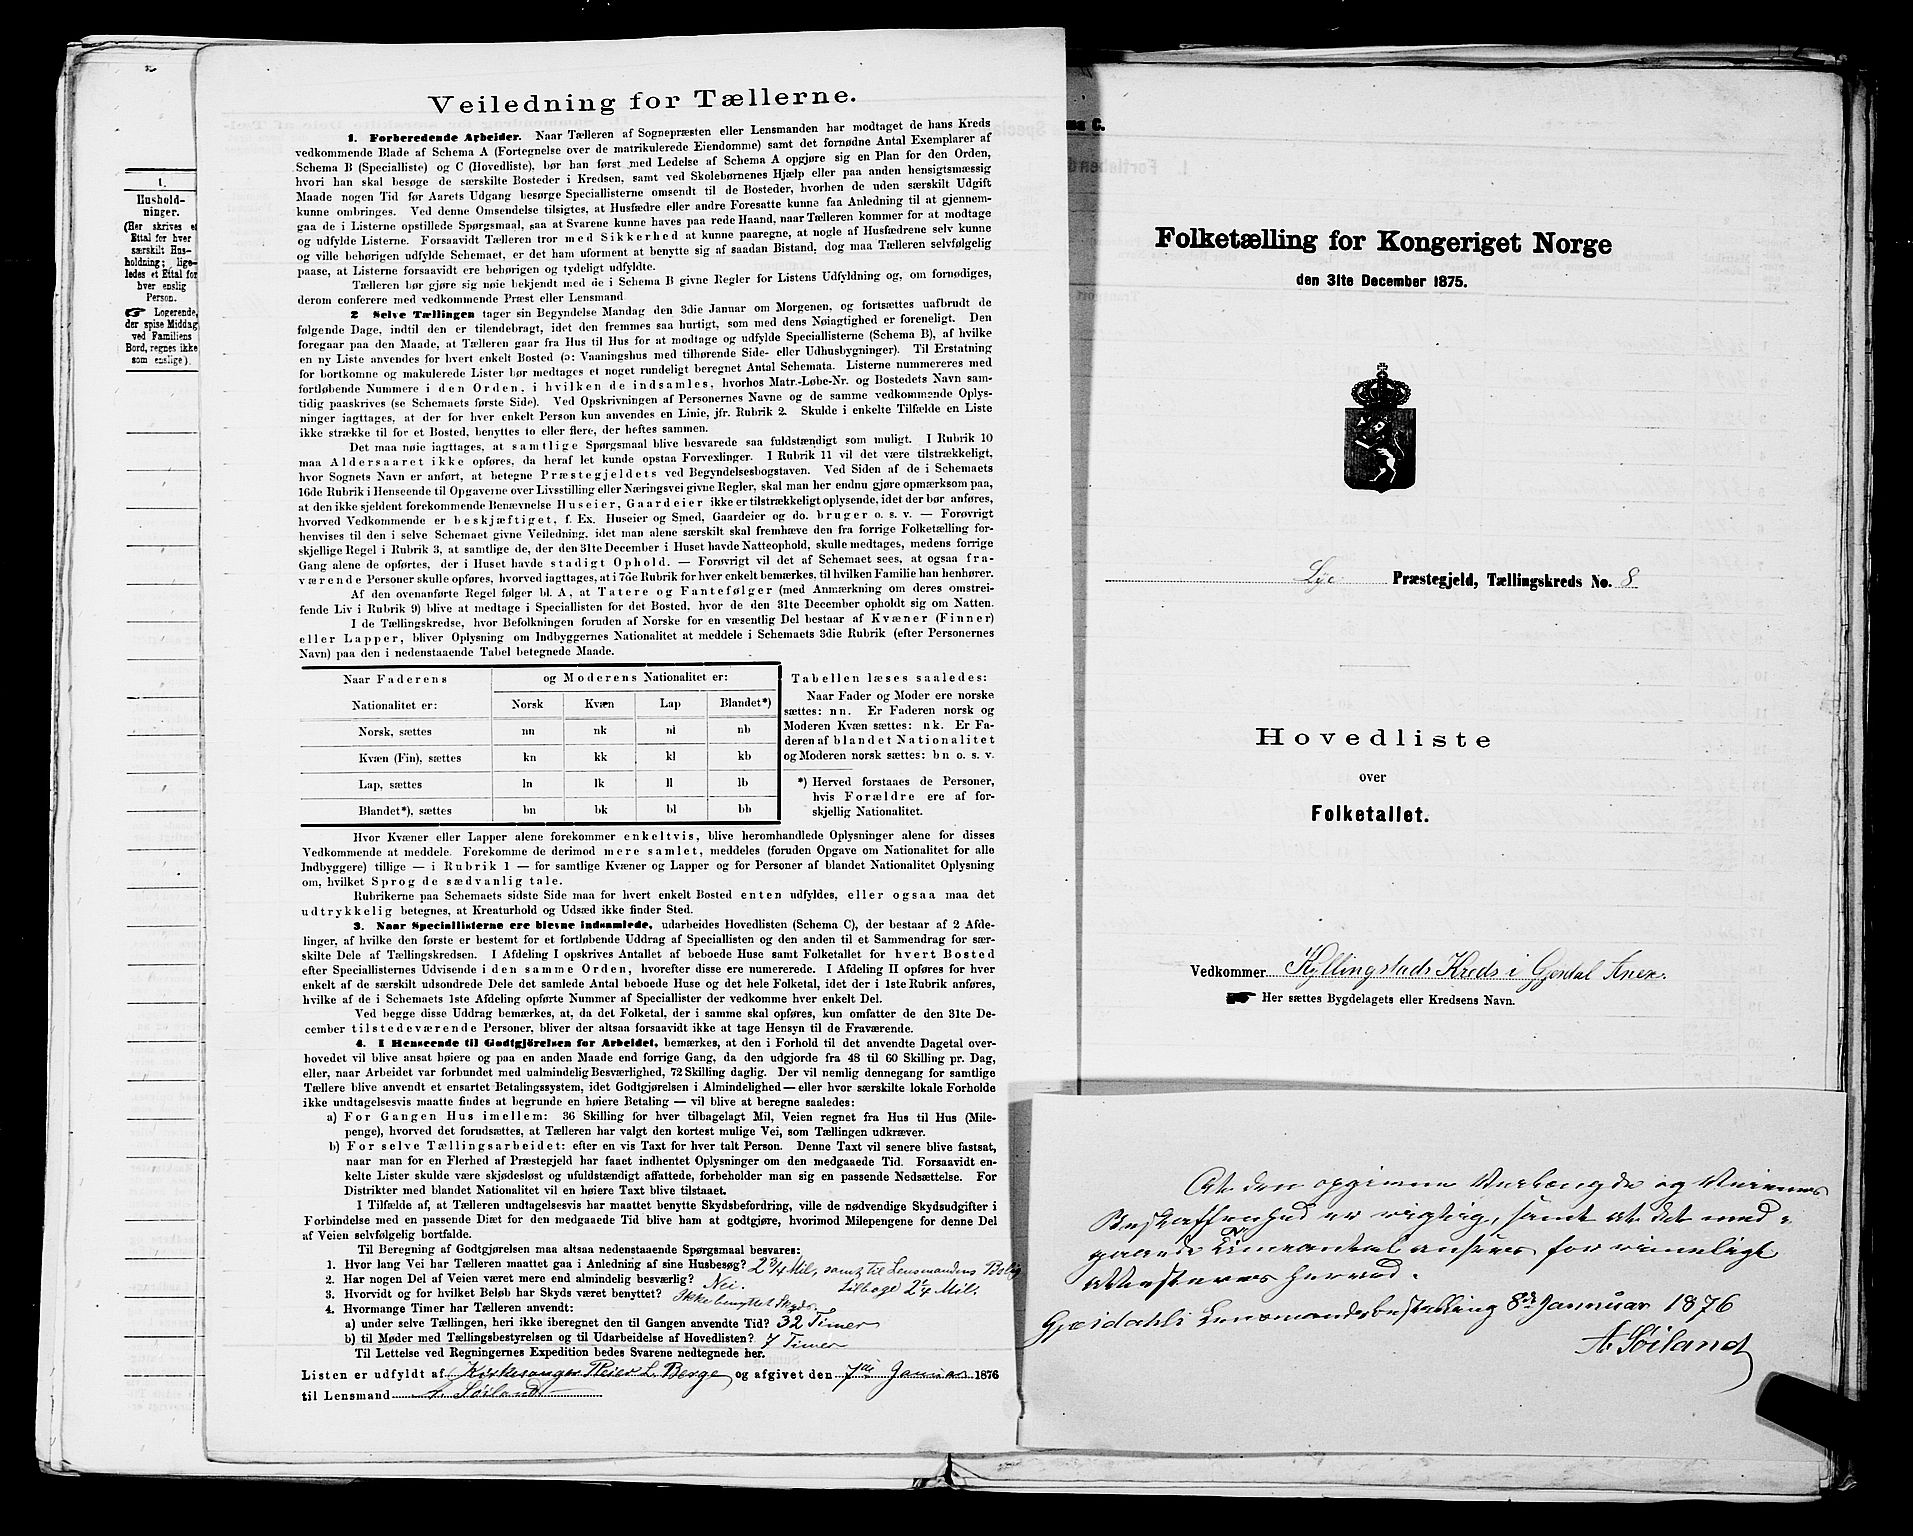 1.
Hushold-
ninger.
(Her skrives et
Ettal for hver
særskilt Hus-
holdning; lige-
ledes et Ettal for
hver enslig
Person.
☞ Logerende,
der spise Middag
ved Familiens
Bord, regnes ikke
som enslige).
Veiledning for Tællerne.
1. Forberedende Arbeider. Naar Tælleren af Sognepræsten eller Lensmanden har modtaget de hans Kreds
vedkommende Blade af Schema A (Fortegnelse over de matrikulerede Eiendomme) samt det fornødne Antal Exemplarer af
Schema B (Specialliste) og C (Hovedliste), bør han først med Ledelse af Schema A opgjøre sig en Plan for den Orden,
hvori han skal besøge de særskilte Bosteder i Kredsen, samt ved Skolebørnenes Hjælp eller paa anden hensigtsmæssig
Maade nogen Tid før Aarets Udgang besørge Speciallisterne omsendt til de Bosteder, hvorhen de uden særskilt Udgift
kunne ombringes. Ved denne Omsendelse tilsigtes, at Husfædre eller andre Foresatte kunne faa Anledning til at gjennem-
gaa de i Listerne opstillede Spørgsmaal, saa at Svarene kunne haves paa rede Haand, naar Tælleren kommer for at modtage
og udfylde Listerne. Forsaavidt Tælleren tror med Sikkerhed at kunne paaregne, at nogle af Husfædrene selv kunne
og ville behørigen udfylde Schemaet, er det ham uforment at benytte sig af saadan Bistand, dog maa Tælleren selvfølgelig
paase, at Listerne forsaavidt ere behørigen og tydeligt udfyldte.
Tælleren bør gjøre sig nøie bekjendt med de i Schema B givne Regler for Listens Udfyldning og, om fornødiges,
derom conferere med vedkommende Præst eller Lensmand
2 Selve Tællingen tager sin Begyndelse Mandag den 3die Januar om Morgenen, og fortsættes uafbrudt de
følgende Dage, indtil den er tilendebragt, idet den fremmes saa hurtigt, som med dens Nøiagtighed er foreneligt. Den
foregaar paa den Maade, at Tælleren gaar fra Hus til Hus for at modtage og udfylde Speciallisterne (Schema B), af hvilke
en ny Liste anvendes for hvert enkelt Bosted (ɔ: Vaaningshus med tilhørende Side- eller Udhusbygninger). Til Erstatning
for bortkomne og makulerede Lister bør medtages et noget rundeligt beregnet Antal Schemata. Listerne nummereres med
fortløbende Nummere i den Orden, i hvilken de indsamles, hvorhos Matr.-Løbe-Nr. og Bostedets Navn sam-
tidig paaskrives (se Schemaets første Side). Ved Opskrivningen af Personernes Navne og de samme vedkommende Oplys-
ninger iagttages, at der for hver enkelt Person kun anvendes en Linie, jfr. Rubrik 2. Skulde i enkelte Tilfælde en Liste
ikke strække til for et Bosted, benyttes to eller flere, der heftes sammen.
Det maa nøie iagttages, at samtlige Spørgsmaal blive besvarede saa fuldstændigt som muligt. I Rubrik 10
maa Aldersaaret ikke opføres, da heraf let kunde opstaa Forvexlinger. I Rubrik 11 vil det være tilstrækkeligt,
hvor Sognets Navn er anført, at betegne Præstegjeldets ved Begyndelsesbogstaven. Ved Siden af de i Schemaets
16de Rubrik i Henseende til Opgaverne over Livsstilling eller Næringsvei givne Regler, skal man her endnu gjøre opmærksom paa,
at den ikke sjeldent forekommende Benævnelse Huseier, Gaardeier ikke er tilstrækkeligt oplysende, idet der bør anføres,
hvorved Vedkommende er beskjæftiget, f. Ex. Huseier og Smed, Gaardeier og do. bruger o. s. v. — Forøvrigt
henvises til den i selve Schemaet givne Veiledning, idet man alene særskilt skal fremhæve den fra forrige Folketælling for-
skjellige Regel i Rubrik 3, at samtlige de, der den 31te December i Huset havde Natteophold, skulle medtages, medens forrige
Gang alene de opførtes, der i Huset havde stadigt Ophold. — Forøvrigt vil det af Schemaet sees, at ogsaa fra-
værende Personer skulle opføres, hvorved iagttages, at i 7de Rubrik for hver enkelt bemærkes, til hvilken Familie han henhører.
Af den ovenanførte Regel følger bl. A, at Tatere og Fantefølger (med Anmærkning om deres omstrei-
fende Liv i Rubrik 9) blive at medtage i Speciallisten for det Bosted, hvor de den 31te December opholdt sig om Natten.
I de Tællingskredse, hvor Befolkningen foruden af Norske for en væsentlig Del bestaar af Kvæner (Finner)
eller Lapper, bliver Oplysning om Indbyggernes Nationalitet at meddele i Schemaets 3die Rubrik (efter Personernes
Navn) paa den i nedenstaaende Tabel betegnede Maade.
Naar Faderens og Moderens Nationalitet er:
Nationalitet er: Norsk Kvæn Lap Blandet*)
Norsk, sættes nn nk nl nb
Kvæn (Fin), sættes kn kk kl kb
Lap, sættes ln lk ll lb
Blandet*), sættes bn bk bl bb
Tabellen læses saaledes:
Naar Fader og Moder ere norske
sættes: nn. Er Faderen norsk og
Moderen Kvæn sættes: nk. Er Fa-
deren af blandet Nationalitet
og Moderen norsk sættes: bn o. s. v.
*) Herved forstaaes de Personer,
hvis Forældre ere af for-
skjellig Nationalitet.
Hvor Kvæner eller Lapper alene forekommer enkeltvis, blive heromhandlede Oplysninger alene for disses
Vedkommende at meddele. Forekomme de derimod mere samlet, meddeles (foruden Opgave om Nationalitet for alle
Indbyggere) tillige — i Rubrik 1 — for samtlige Kvæner og Lapper og for Personer af blandet Nationalitet Oplysning
om, hvilket Sprog de sædvanlig tale.
Rubrikerne paa Schemaets sidste Side maa for hvert enkelt Bosted enten udfyldes, eller ogsaa maa det
udtrykkelig betegnes, at Kreaturhold og Udsæd ikke finder Sted.
3. Naar Speciallisterne ere blevne indsamlede, udarbeides Hovedlisten (Schema C), der bestaar af 2 Afde-
linger, af hvilke den første er bestemt for et fortløbende Uddrag af Speciallisten og den anden til et Sammendrag for sær-
skilte Dele af Tællingskredsen. I Afdeling I opskrives Antallet af beboede Huse samt Folketallet for hvert Bosted
efter Speciallisternes Udvisende i den samme Orden, hvorefter disse ere numererede. I Afdeling II opføres for hver
enkelt af de særskilt udsondrede Dele det samlede Antal beboede Huse og det hele Folketal, idet der i 1ste Rubrik anføres,
hvilke af de i Schemaets 1ste Afdeling opførte Nummer af Speciallister der vedkomme hver enkelt Del.
Ved begge disse Uddrag bemærkes, at, da det Folketal, der i samme skal opføres, kun omfatter de den 31te De-
cember tilstedeværende Personer, bliver der altsaa forsaavidt ikke at tage Hensyn til de Fraværende.
4. I Henseende til Godtgjörelsen for Arbeidet, bemærkes, at den i Forhold til det anvendte Dagetal over-
hovedet vil blive ansat høiere og paa en anden Maade end forrige Gang, da den udgjorde fra 48 til 60 Skilling pr. Dag,
eller, naar Arbeidet var forbundet med ualmindelig Besværlighed, 72 Skilling daglig. Der vil nemlig dennegang for samtlige
Tællere blive anvendt et ensartet Betalingssystem, idet Godtgjørelsen i Almindelighed — eller hvor særskilte lokale Forholde
ikke undtagelsesvis maatte findes at begrunde en høiere Betaling — vil blive at beregne saaledes:
a) For Gangen Hus imellem: 36 Skilling for hver tilbagelagt Mil, Veien regnet fra Hus til Hus (Mile-
penge), hvorved det forudsættes, at Tælleren har valgt den kortest mulige Vei, som Tællingen udkræver.
b) For selve Tællingsarbeidet: efter en vis Taxt for hver talt Person. Denne Taxt vil senere blive fastsat,
naar man for en Flerhed af Præstegjeld har faaet indhentet Oplysninger om den medgaaede Tid. Forsaavidt en-
kelte Lister skulde være skjødesløst og ufuldstændigt affattede, forbeholder man sig en passende Nedsættelse. For
Distrikter med blandet Nationalitet vil en høiere Taxt blive tilstaaet.
I Tilfælde af, at Tælleren undtagelsesvis har maattet benytte Skydsbefordring, ville de nødvendige Skydsudgifter i
Forbindelse med en passende Diæt for den medgaaede Tid blive ham at godtgjøre, hvorimod Milepengene for denne Del
af Veien selvfølgelig bortfalde.
Til Beregning af Godtgjørelsen maa altsaa nedenstaaende Spørgsmaal besvares:
1. Hvor lang Vei har Tælleren maattet gaa i Anledning af sine Husbesøg? 2 3/4 Mil, samt til Lensmandens Bolig
2. Har nogen Del af Veien været mere end almindelig besværlig? Nei. tilbage 2 1/4 Mil.
3. Hvorvidt og for hvilket Beløb har Skyds været benyttet? Ikke benyttet Skyds.
4. Hvormange Timer har Tælleren anvendt:
a) under selve Tællingen, heri ikke iberegnet den til Gangen anvendte Tid? 32 Timer
b) til Møder med Tællingsbestyrelsen og til Udarbeidelse af Hovedlisten? 7 Timer
Til Lettelse ved Regningernes Expedition bedes Svarene nedtegnede her.
Listen er udfyldt af Kirkesanger Peier L. Berge og afgivet den 7de Januar 1876
til Lensmand A. Söiland
ma C.
Folketælling for Kongeriget Norge
den 31te December 1875.
Lye Præstegjeld, Tællingskreds No. 8
Hovedliste
over
Folketallet.
Vedkommer Kyllingstads Kreds i Gjestal Anex.
☞ Her sættes Bygdelagets eller Kredsens Navn.
At den opgivne Veilængde og Veienes
Beskaffenhed er rigtig, samt at det med-
gaaede Timeantal ansees for rimeligt
attesteres herved.
Gjesdahls Lensmandsbestilling 8de Januar 1876
A. Söiland